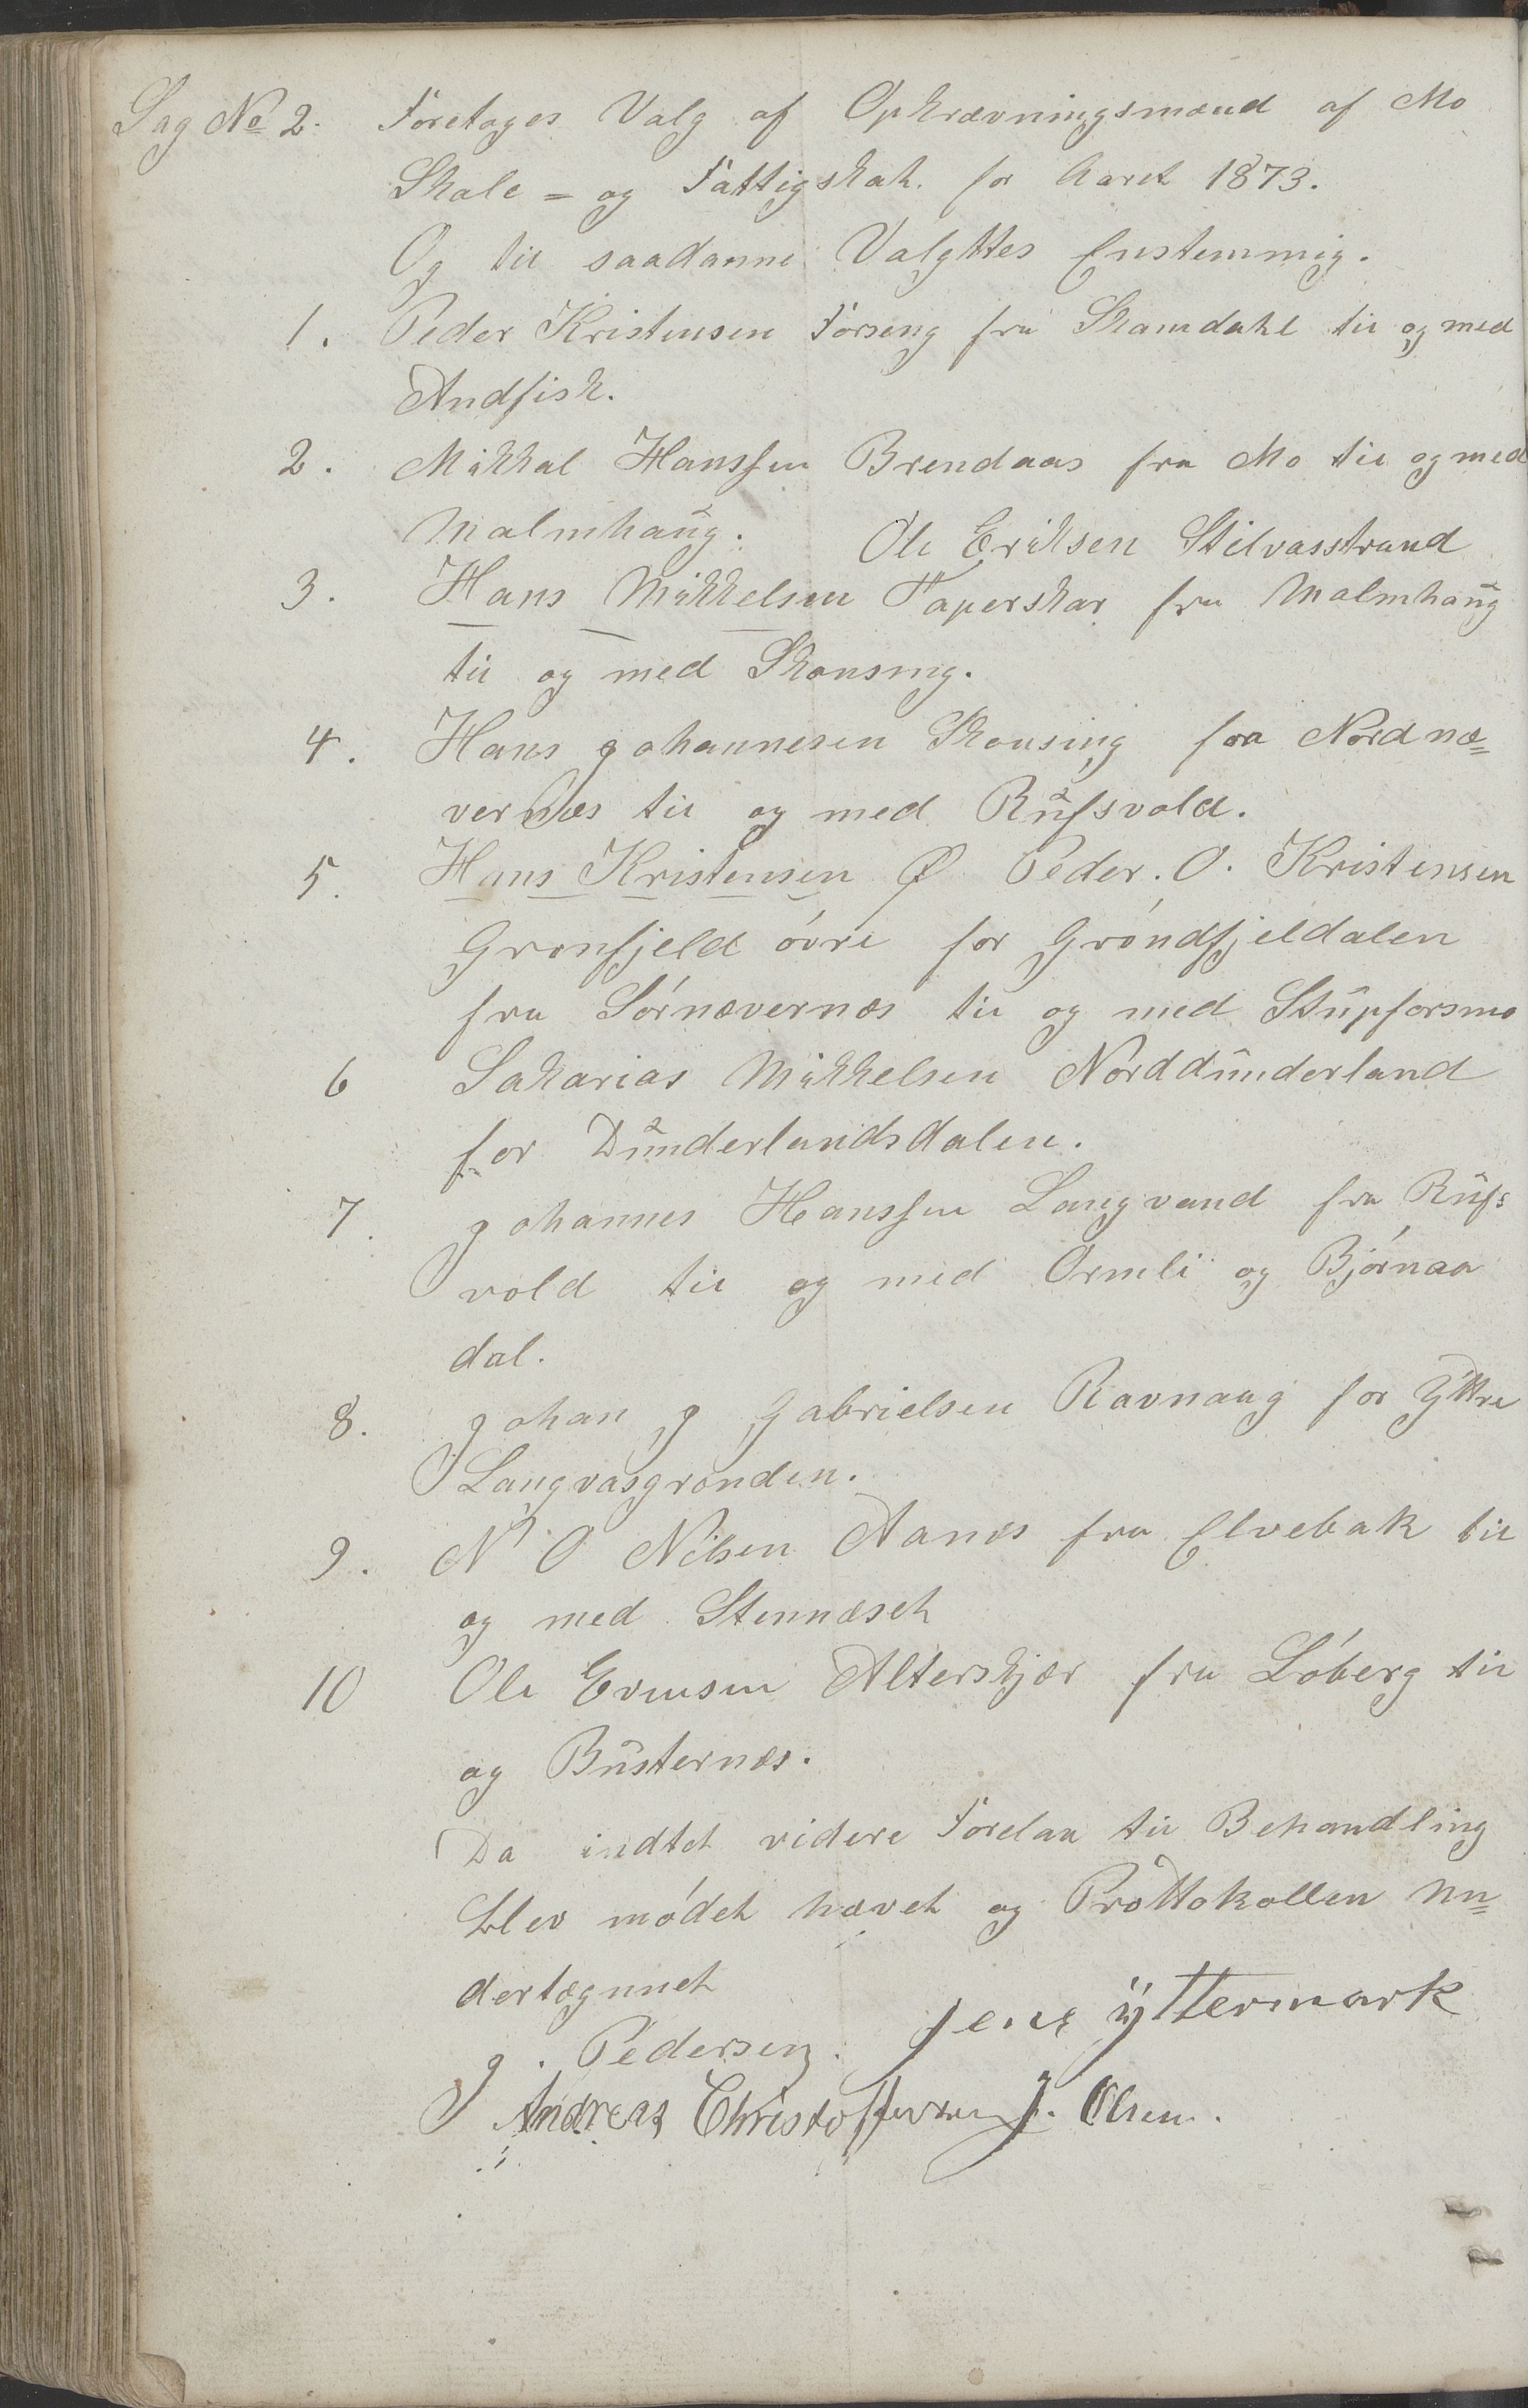 Sag No 2. Foretages Valg af Opkrævningsmænd af Mo
Skole = og Fattigskak. for Aaret 1873.
Og til saadanne Valgttes Enstemmig.
1. Peder Kristensen Forseng fra Skamdahl til og med
Andfisk.
2. Mikkal Hanssen Brendaas fra Mo til og med
Malmhaug. Ole Eriksen Stilvasstrand
3. Hans Mikkelsen Taperskar fra Malmhaug
til og med Skonsing.
4. Hans Johannesen Skonsing fra Nordnæ=
vernæs til og med Russvold.
5. Hans Kristensen Ø Peder. O. Kristensen
Gronfjeld óvre for Gróndfjeldalen
fra Sórnævernæs til og med Stupforsmo
6 Sakarias Mikkelsen Norddunderland
for Dunderlandsdalen.
7. Johannes Hanssen Langvand fra Russ
vold til og med Ormli og Bjórnaa
dal.
8. Johan J Gabrielsen Ravnaag for Yttre
Langvasgronden.
9. N O Nilsen Aanes fra Elvebak til
og med Stennæsek
10 Ole Evensen Alterskjær fra Lóberg til
og Busternæs.
Da indtet videre Forelaa til Behandling
blev módet hævet og Prottokollen un=
dertægnnet
J. Pedersen. Jens Yttermark
Andreas Christoffersen J. Olsen.